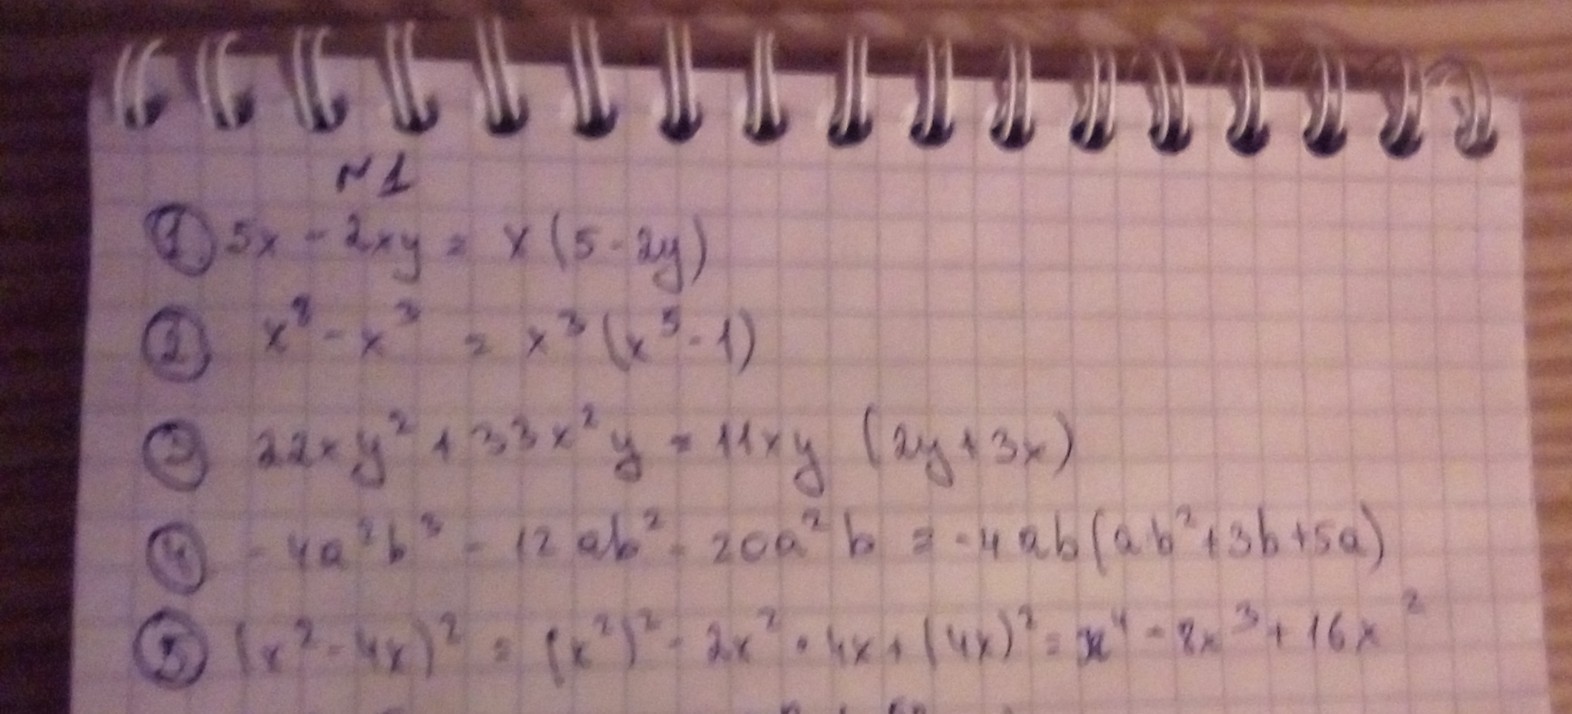 N1
① 5x - 2xy = x(5 - 2y)
② x⁸ - x³ = x³(x⁵ - 1)
③ 22xy² + 33x²y = 11xy (2y + 3x)
④ - 4a²b³ - 12ab² - 20a²b = -4ab(ab² + 3b + 5a)
⑤ (x² - 4x)² = (x²)² - 2x² · 4x + (4x)² = x⁴ - 8x³ + 16x²